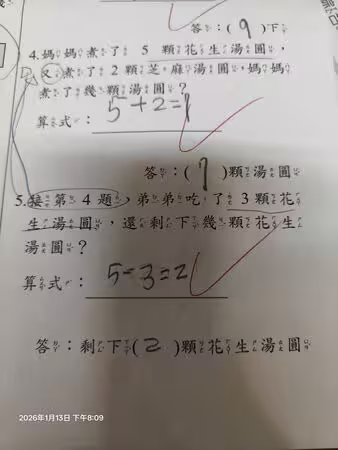 答:( 9 )下
4.媽媽煮了 5 顆花生湯圓,
又煮了 2 顆芝麻湯圓,媽媽
煮了幾顆湯圓?
算式: 5+2=7
答:( 7 )顆湯圓
5.接第 4 題,弟弟吃了 3 顆花
生湯圓,還剩下幾顆花生
湯圓?
算式: 5-3=2
答:剩下( 2 )顆花生湯圓
2026年1月13日 下午8:09